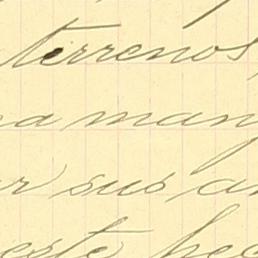 terrenos,
a man
r sus a
este hec